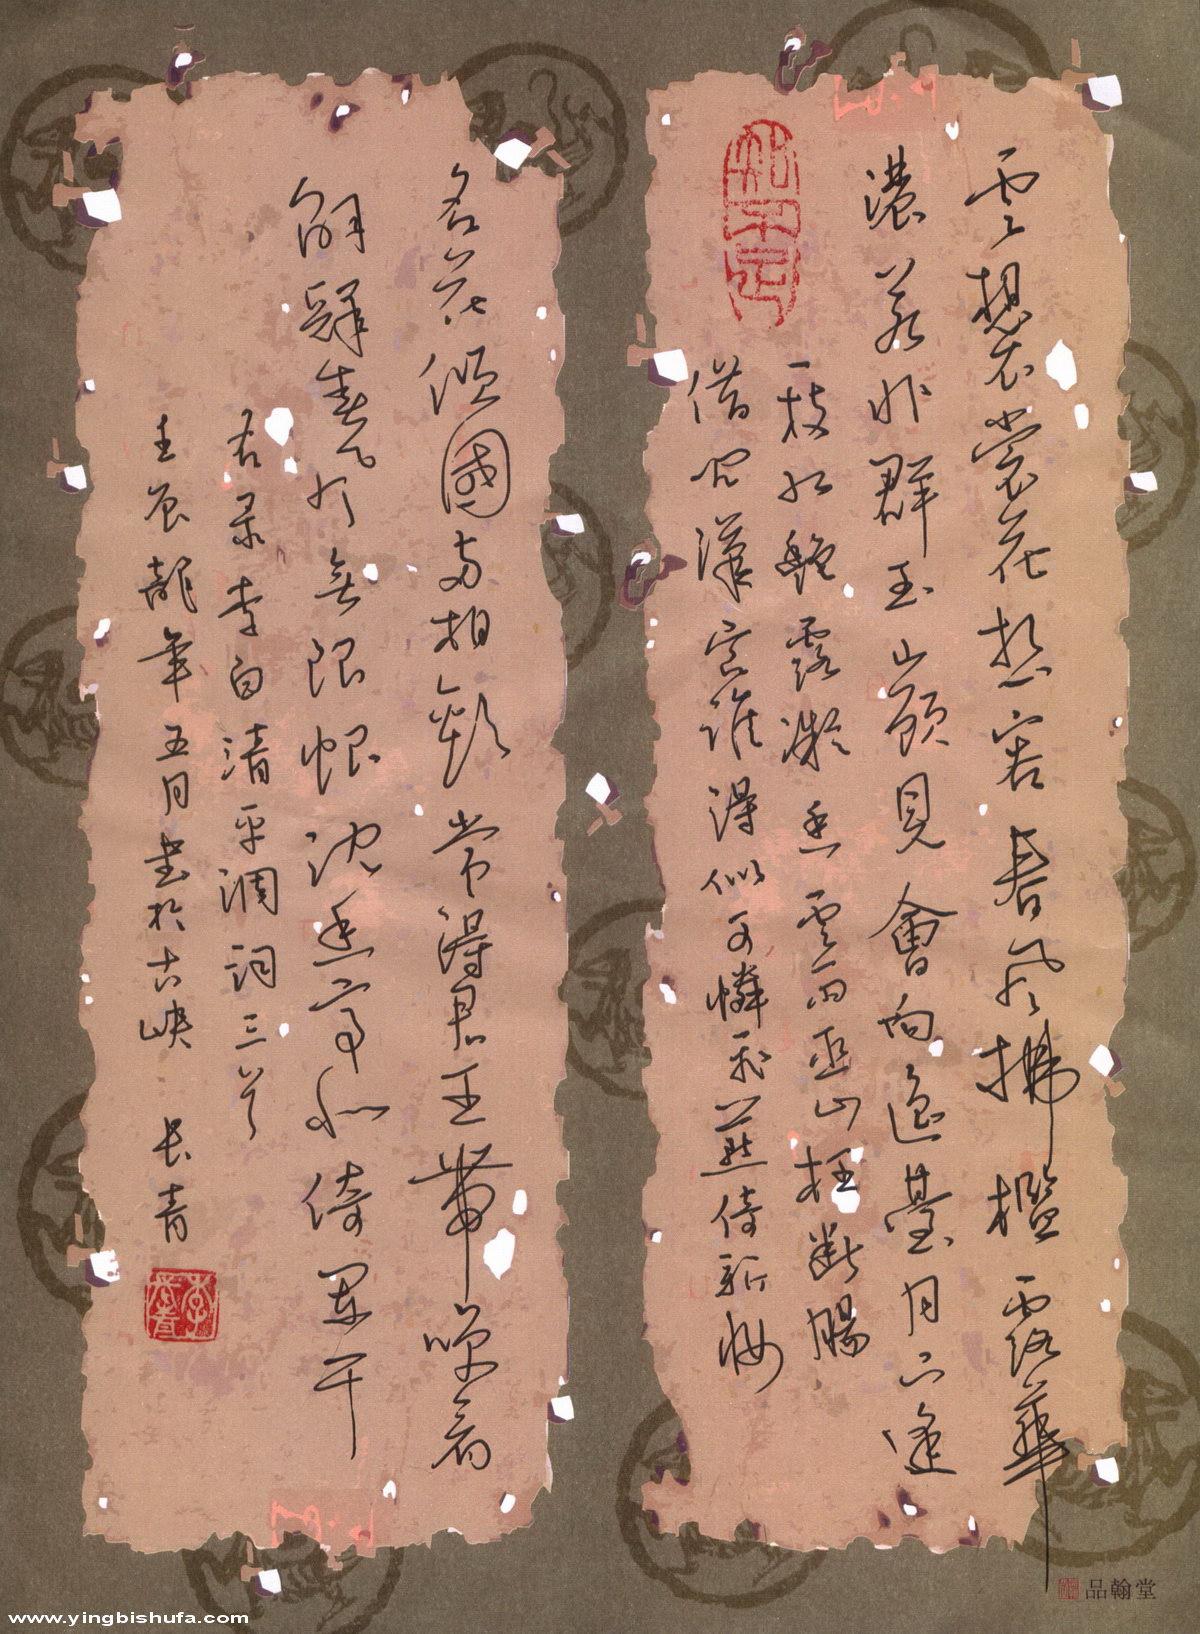 雲想衣裳花想容春风拂檻露華
濃若非群玉山頭見會向瑤臺月下逢
一枝红艷露凝香雲雨巫山枉斷腸
借问漢宫谁得似可憐飛燕倚新妝
名花傾國两相歡常得君王帶笑看
解釋春风無限恨沈香亭北倚闌干
右录李白清平调词三首
壬辰龍年五月書於古峽 長青
品翰堂
www.yingbishufa.com